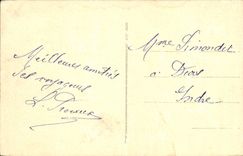 Meilleures amitiés
des voyageurs
Mme Simondet
à Déols
Indre